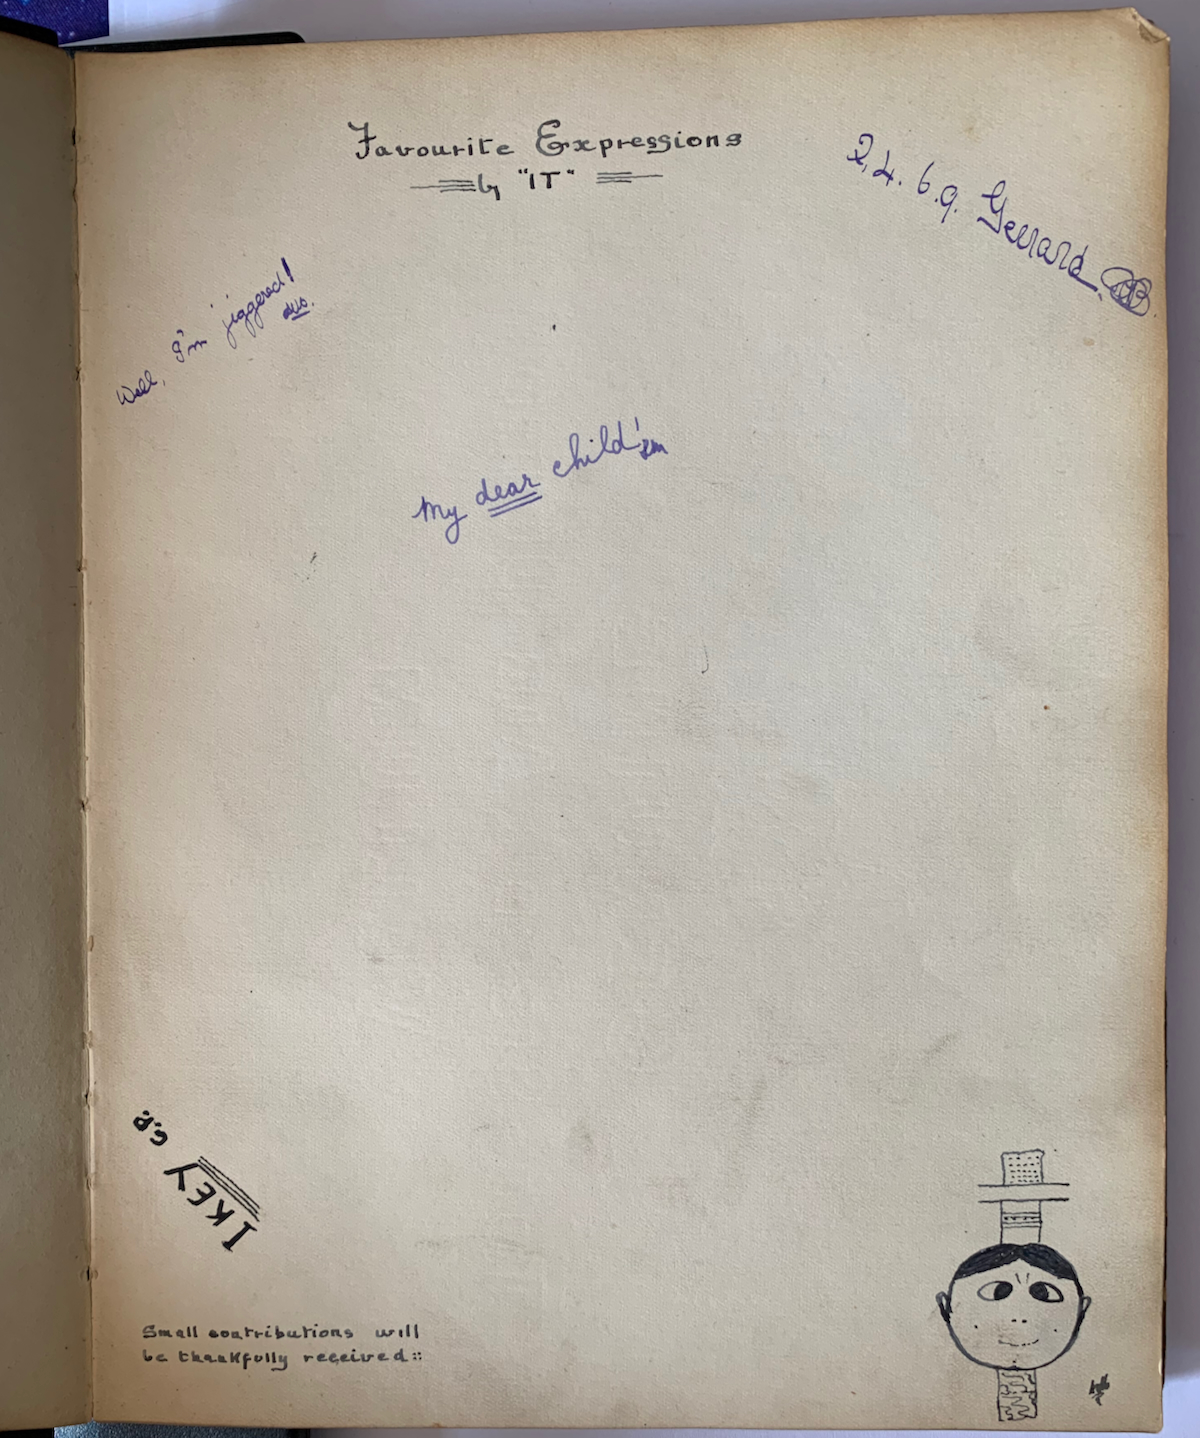 Favourite Expressions
by "IT"
2. 4. 6. 9. Gerrard.
Well, I'm jiggered!
My dear child'em
IKEY G.P.
Small contributions will
be thankfully received::